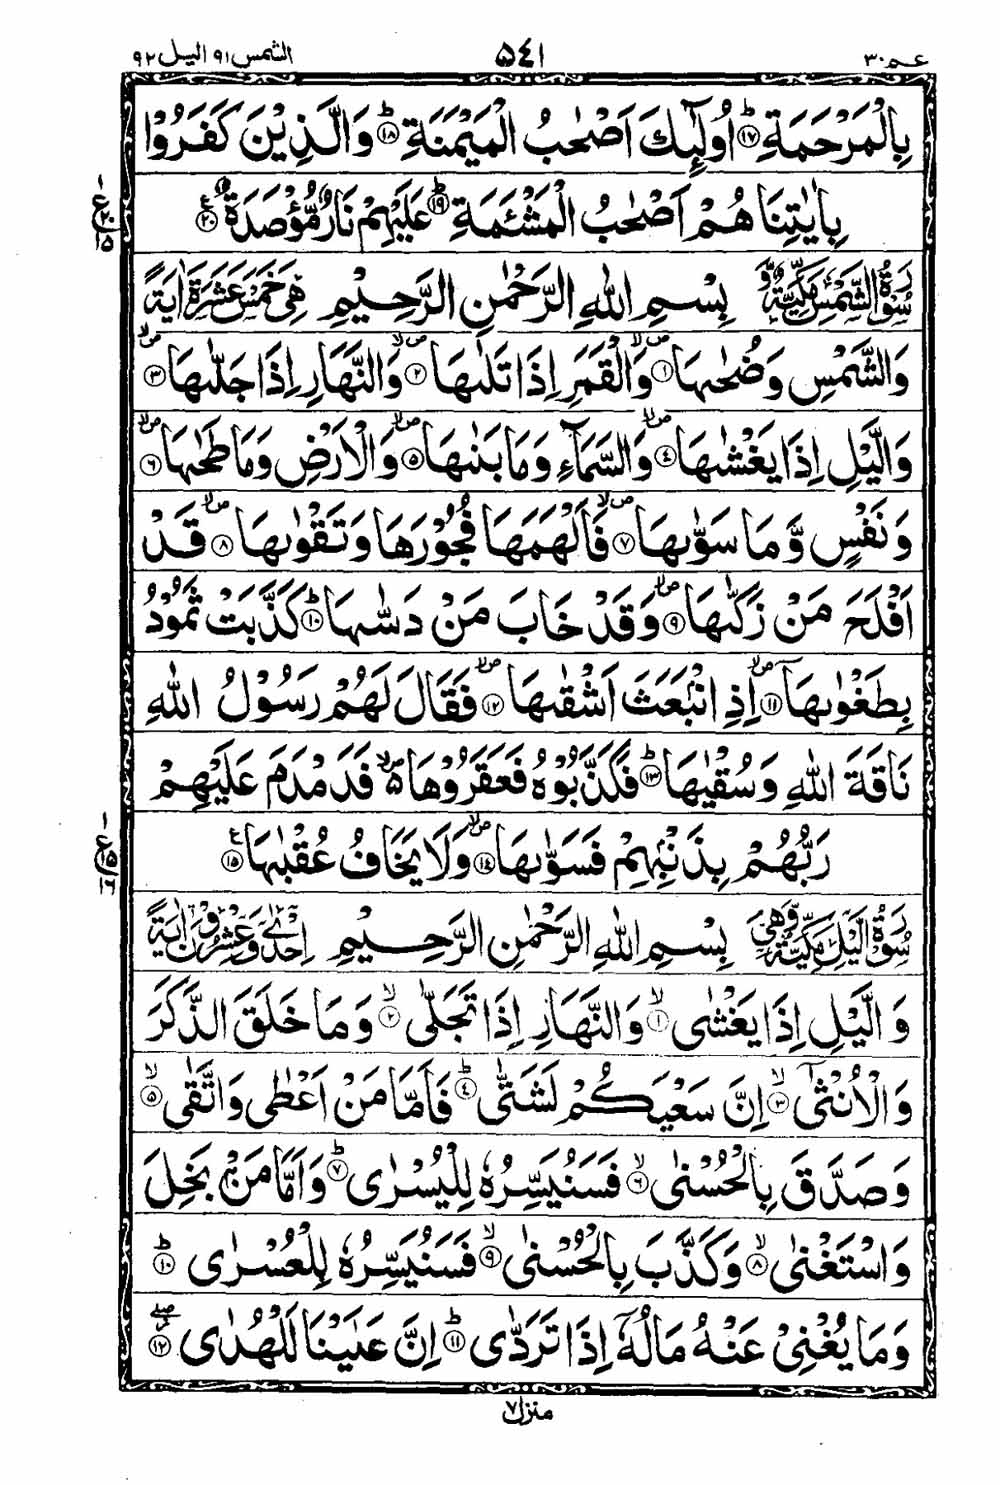 الشمس ۹۱ الیل ۹۲
۵۴۱
عم ۳۰
بِالْمَرْحَمَةِ ؕ﴿۱۷﴾ اُولٰٓئِكَ اَصْحٰبُ الْمَيْمَنَةِ ؕ﴿۱۸﴾ وَالَّذِيْنَ كَفَرُوْا
بِاٰيٰتِنَا هُمْ اَصْحٰبُ الْمَشْـَٔمَةِ ؕ﴿۱۹﴾ عَلَيْهِمْ نَارٌ مُّؤْصَدَةٌ ﴿۲۰﴾ ع
سُوْرَةُ الشَّمْسِ مَكِّيَّةٌ وَّ بِسْمِ اللهِ الرَّحْمٰنِ الرَّحِيْمِ هِيَ خَمْسَ عَشْرَةَ اٰيَةً
وَالشَّمْسِ وَضُحٰىهَا ﴿۱﴾ وَالْقَمَرِ اِذَا تَلٰىهَا ﴿۲﴾ وَالنَّهَارِ اِذَا جَلّٰىهَا ﴿۳﴾
وَالَّيْلِ اِذَا يَغْشٰىهَا ﴿۴﴾ وَالسَّمَآءِ وَمَا بَنٰىهَا ﴿۵﴾ وَالْاَرْضِ وَمَا طَحٰىهَا ﴿۶﴾
وَنَفْسٍ وَّمَا سَوّٰىهَا ﴿۷﴾ فَاَلْهَمَهَا فُجُوْرَهَا وَتَقْوٰىهَا ﴿۸﴾ قَدْ
اَفْلَحَ مَنْ زَكّٰىهَا ﴿۹﴾ وَقَدْ خَابَ مَنْ دَسّٰىهَا ؕ﴿۱۰﴾ كَذَّبَتْ ثَمُوْدُ
بِطَغْوٰىهَاۤ ﴿۱۱﴾ اِذِ انْۢبَعَثَ اَشْقٰىهَا ﴿۱۲﴾ فَقَالَ لَهُمْ رَسُوْلُ اللهِ
نَاقَةَ اللهِ وَسُقْيٰهَا ؕ﴿۱۳﴾ فَكَذَّبُوْهُ فَعَقَرُوْهَا ۵ فَدَمْدَمَ عَلَيْهِمْ
رَبُّهُمْ بِذَنْۢبِهِمْ فَسَوّٰىهَا ﴿۱۴﴾ وَلَا يَخَافُ عُقْبٰهَا ﴿۱۵﴾ ع
سُوْرَةُ الَّيْلِ مَكِّيَّةٌ وَّهِيَ بِسْمِ اللهِ الرَّحْمٰنِ الرَّحِيْمِ اِحْدٰى وَّعِشْرُوْنَ اٰيَةً
وَالَّيْلِ اِذَا يَغْشٰى ۙ﴿۱﴾ وَالنَّهَارِ اِذَا تَجَلّٰى ۙ﴿۲﴾ وَمَا خَلَقَ الذَّكَرَ
وَالْاُنْثٰۤى ۙ﴿۳﴾ اِنَّ سَعْيَكُمْ لَشَتّٰى ؕ﴿۴﴾ فَاَمَّا مَنْ اَعْطٰى وَاتَّقٰى ۙ﴿۵﴾
وَصَدَّقَ بِالْحُسْنٰى ۙ﴿۶﴾ فَسَنُيَسِّرُهٗ لِلْيُسْرٰى ؕ﴿۷﴾ وَاَمَّا مَنْۢ بَخِلَ
وَاسْتَغْنٰى ۙ﴿۸﴾ وَكَذَّبَ بِالْحُسْنٰى ۙ﴿۹﴾ فَسَنُيَسِّرُهٗ لِلْعُسْرٰى ؕ﴿۱۰﴾
وَمَا يُغْنِيْ عَنْهُ مَالُهٗۤ اِذَا تَرَدّٰى ؕ﴿۱۱﴾ اِنَّ عَلَيْنَا لَلْهُدٰى ﴿۱۲﴾
منزل ۷